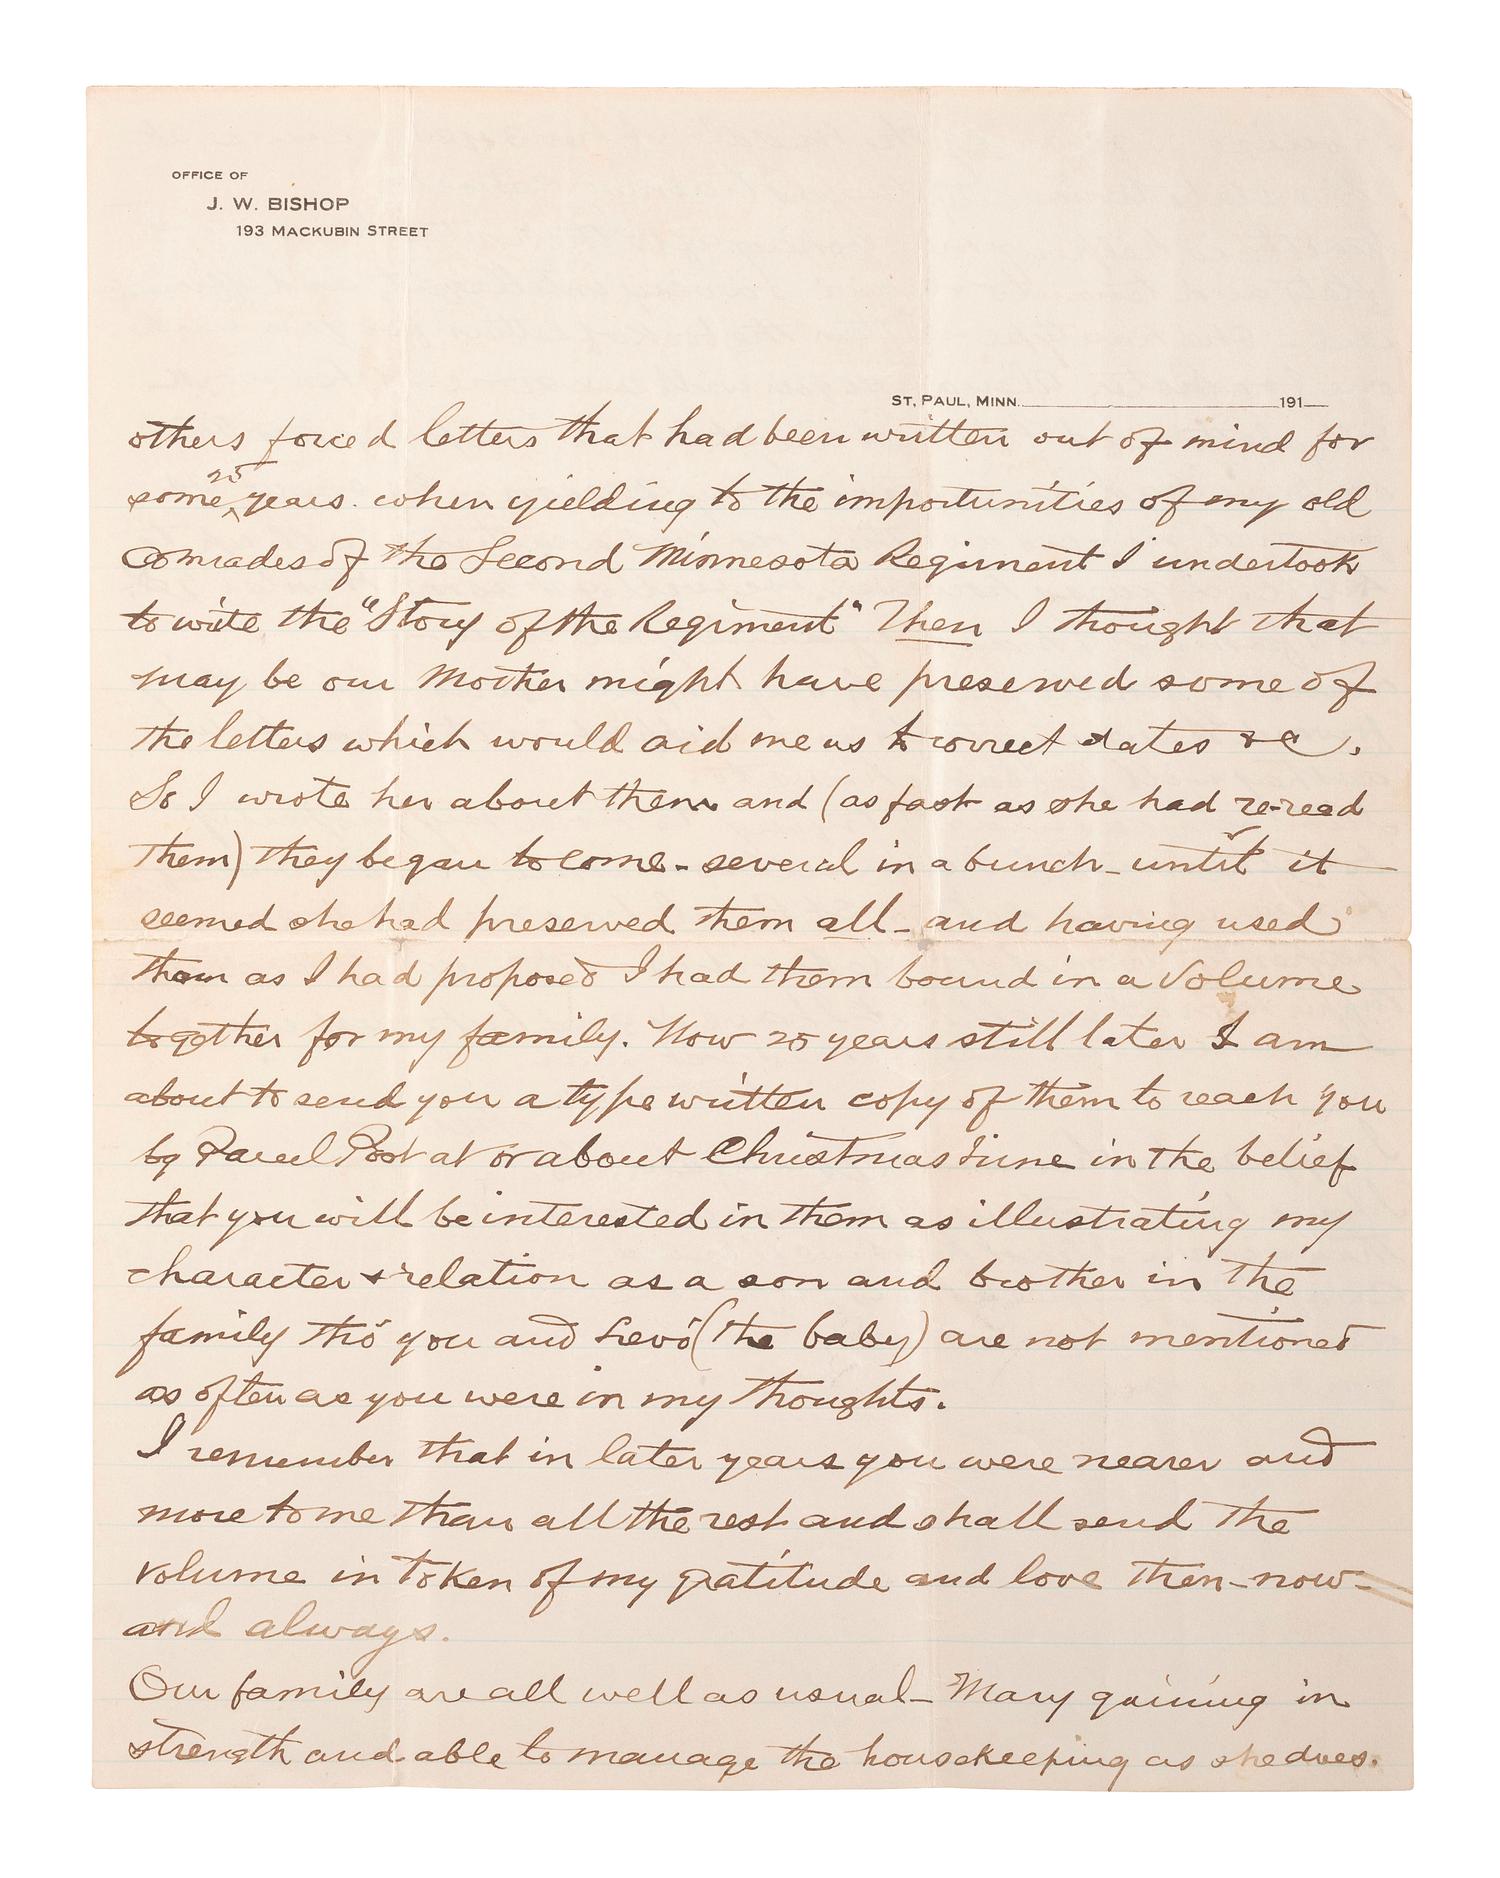 OFFICE OF
J. W. BISHOP
193 MACKUBIN STREET
ST. PAUL, MINN. 191
others forced letters that had been written out of mind for
some 25 years. when yielding to the importunities of my old
comrades of the Second Minnesota Regiment I undertook
to write the "Story of the Regiment" Then I thought that
may be our Mother might have preserved some of
the letters which would aid me as to correct dates &c.
So I wrote her about them and (as fast as she had re-read
them) they began to come - several in a bunch - until it
seemed she had preserved them all - and having used
them as I had proposed I had them bound in a volume
together for my family. Now 20 years still later I am
about to send you a type written copy of them to reach you
by Parcel Post at or about Christmas time in the belief
that you will be interested in them as illustrating my
character & relation as a son and brother in the
family tho you and (the baby) are not mentioned
as often as you were in my thoughts.
I remember that in later years you were nearer and
more to me than all the rest and shall send the
volume in token of my gratitude and love then - now -
and always.
Our family are all well as usual - Mary gaining in
strength and able to manage the housekeeping as she does.